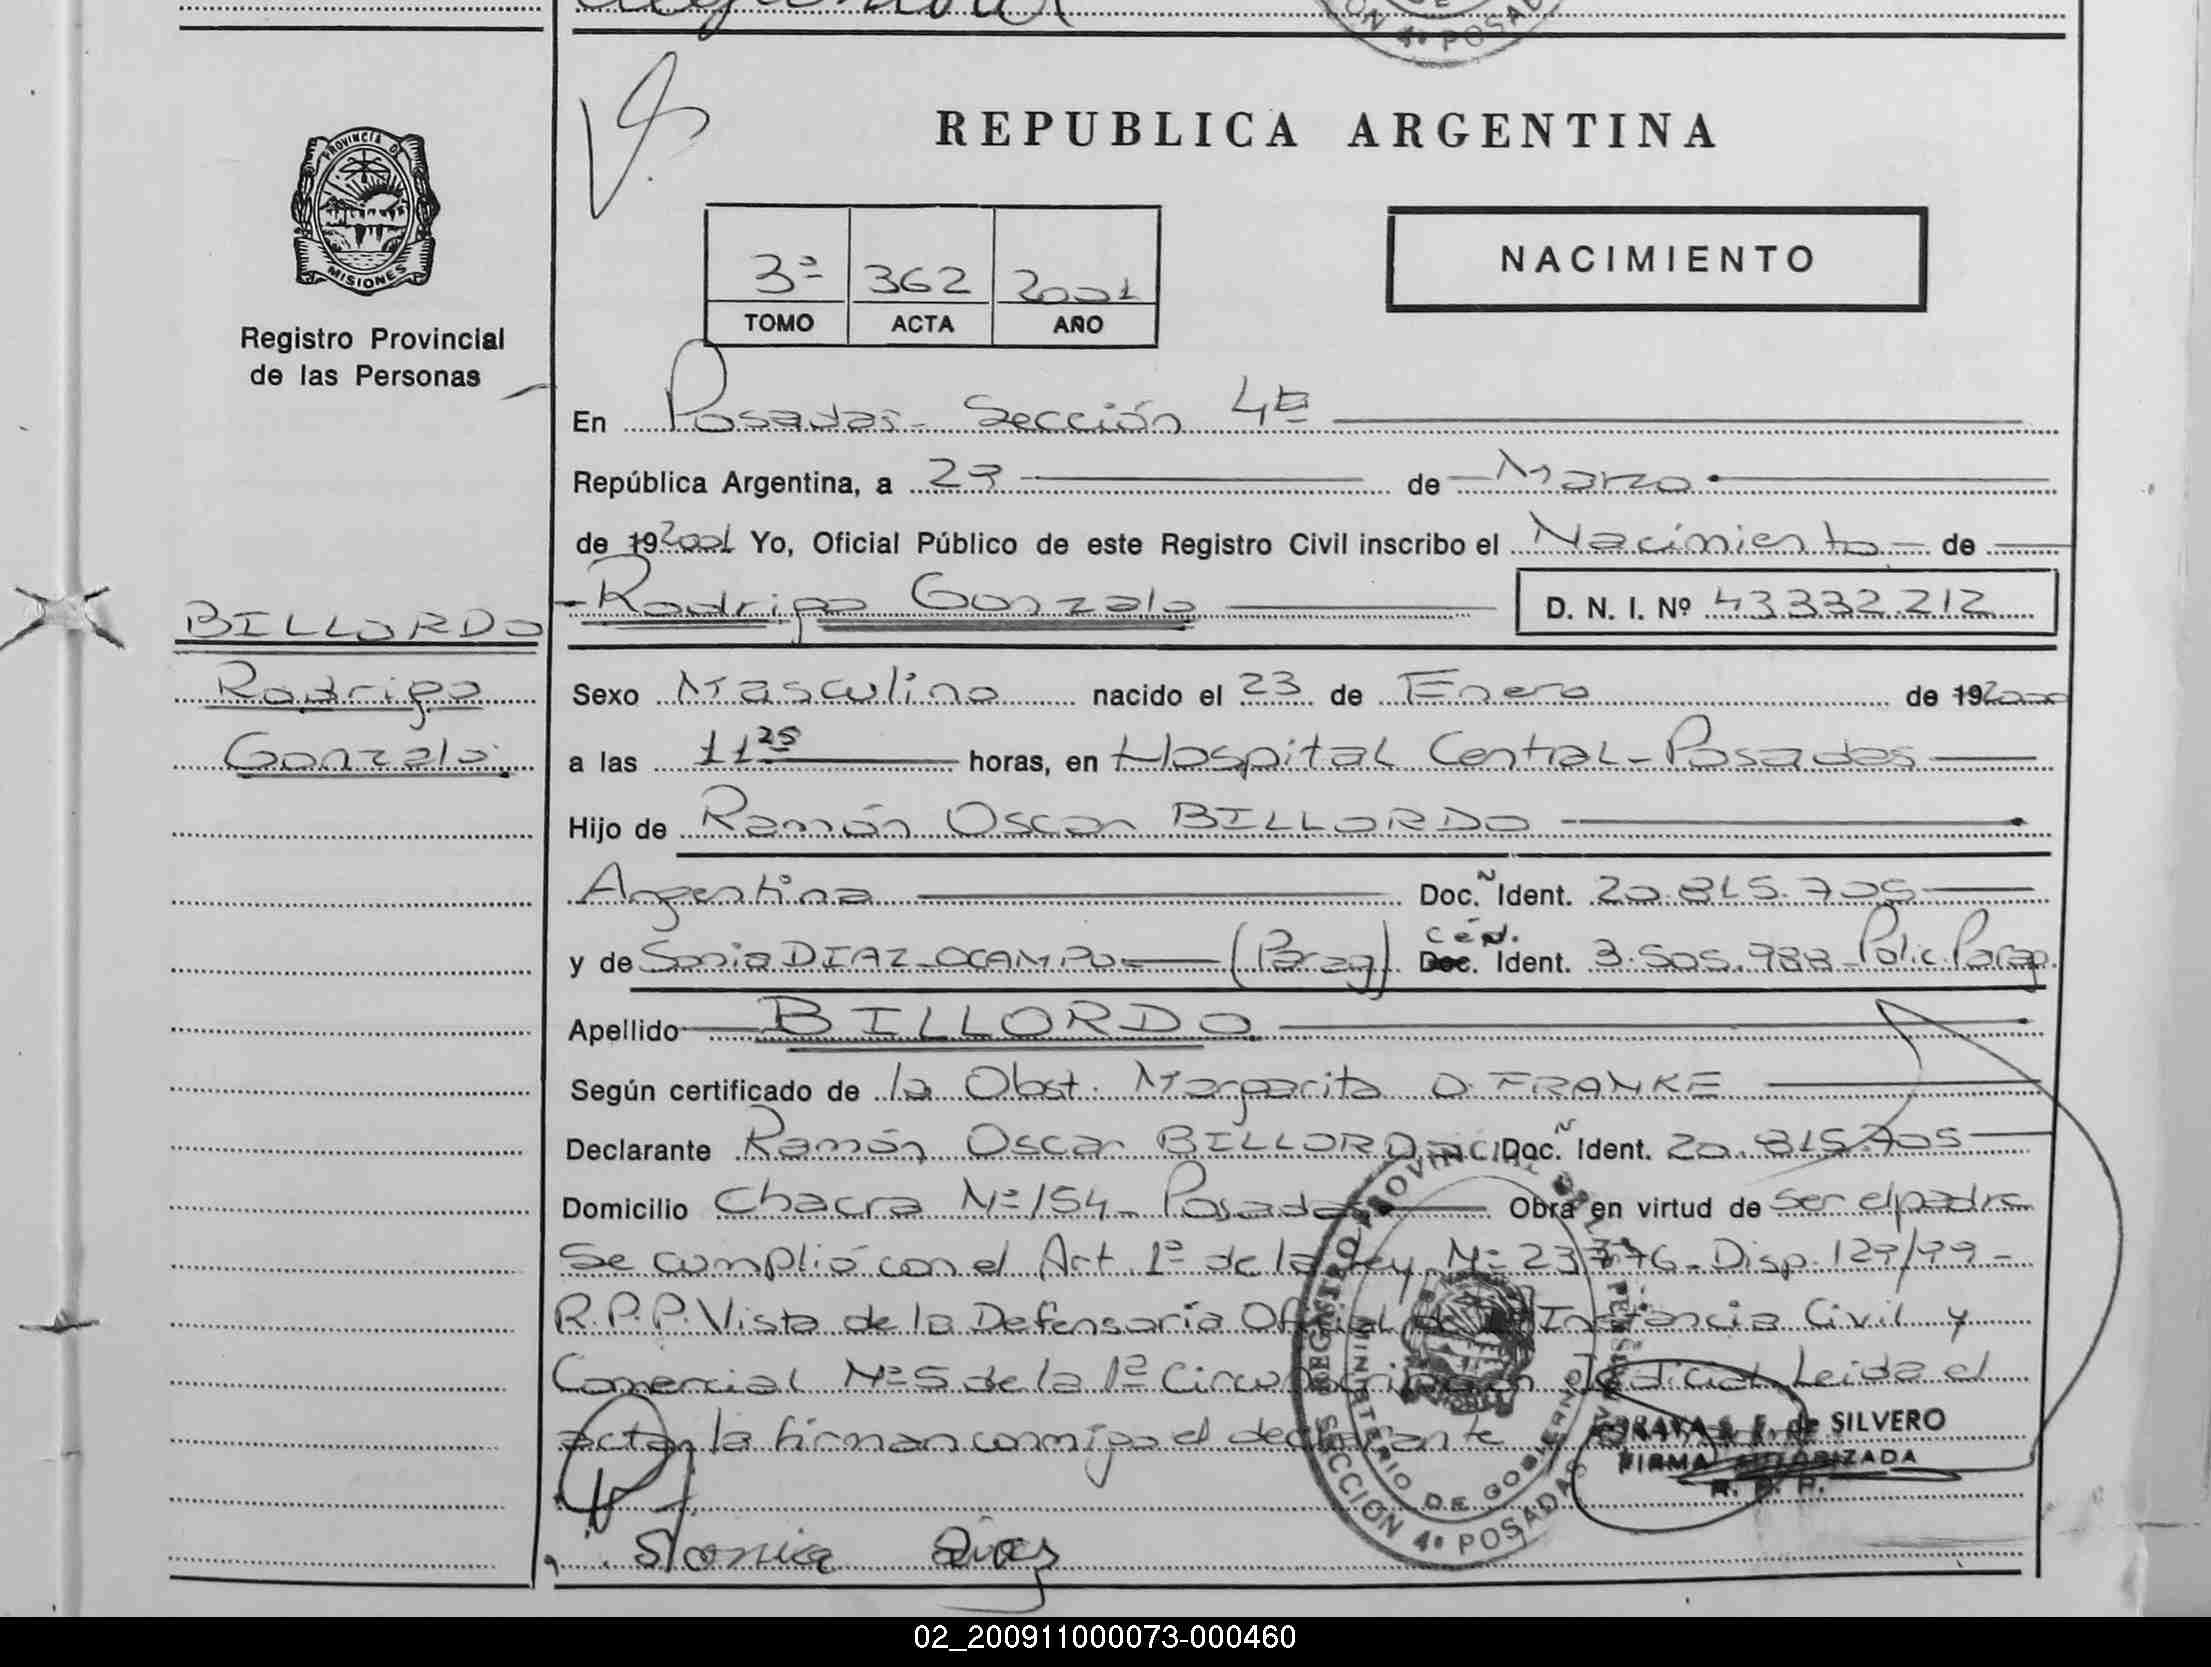 REPUBLICA ARGENTINA
PROVINCIA DE
MISIONES
Registro Provincial
de las Personas
3º 362 2001
TOMO ACTA AÑO
NACIMIENTO
En Posadas - Sección 4ta
República Argentina, a 29 de Marzo
de 19 2001 Yo, Oficial Público de este Registro Civil inscribo el Nacimiento de
- Rodrigo Gonzalo
D. N. I. Nº 43.332.212
BILLORDO
Rodrigo
Gonzalo
Sexo Masculino nacido el 23 de Enero de 19 2000
a las 11 25 horas, en Hospital Central - Posadas
Hijo de Ramón Oscar BILLORDO
Argentina Doc. N Ident. 20.815.705
y de Sonia DIAZ OCAMPO (Parag) Céd. Doc. Ident. 3.505.988 Polic. Parag.
Apellido BILLORDO
Según certificado de la Obst. Margarita O. FRANKE
Declarante Ramón Oscar BILLORDO Doc. N Ident. 20.815.705
Domicilio Chacra Nº 154 - Posadas Obra en virtud de ser el padre
Se cumplió con el Art. 1º de la Ley Nº 23776 - Disp. 129/99 -
R.P.P. Vista de la Defensoría Oficial de Instancia Civil y
Comercial Nº 5 de la 1º Circunscripción Judicial Leida el
acta, la firman conmigo el declarante
REGISTRO PROVINCIAL DE LAS PERSONAS
MINISTERIO DE GOBIERNO
SECCIÓN 4ª POSADAS
S. E. de SILVERO
FIRMA AUTORIZADA
R. P. P.
Sonia Diaz
02_200911000073-000460